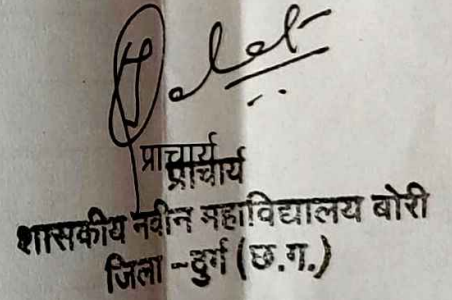 प्राचार्य
प्राचार्य
शासकीय नवीन महाविद्यालय बोरी
जिला - दुर्ग (छ.ग.)